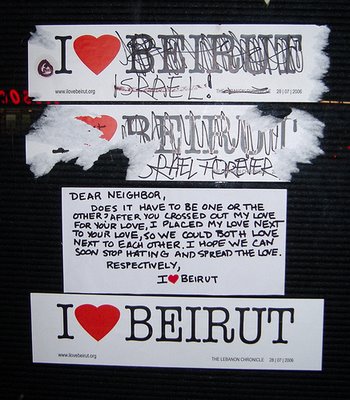 I ♥ BEIRUT
ISRAEL!
www.ilovebeirut.org 28 | 07 | 2006
BEIRUT
ISRAEL FOREVER
28 | 07 | 2006
DEAR NEIGHBOR,
DOES IT HAVE TO BE ONE OR THE
OTHER? AFTER YOU CROSSED OUT MY LOVE
FOR YOUR LOVE, I PLACED MY LOVE NEXT
TO YOUR LOVE, SO WE COULD BOTH LOVE
NEXT TO EACH OTHER. I HOPE WE CAN
SOON STOP HATING AND SPREAD THE LOVE.
RESPECTIVELY,
I ♥ BEIRUT
I ♥ BEIRUT
www.ilovebeirut.org THE LEBANON CHRONICLE 28 | 07 | 2006